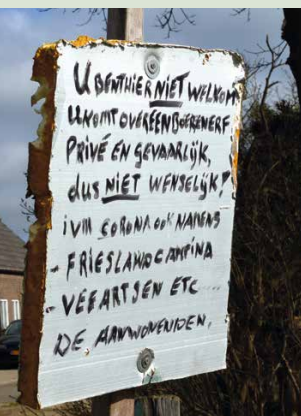 U BENT HIER NIET WELKOM
U KOMT OVER EEN BOERENERF
PRIVÉ EN GEVAARLIJK,
dus NIET WENSELIJK!
i VM CORONA OOK NAMENS
- FRIESLANDCAMPINA
- VEEARTSEN ETC....
DE AANWONENDEN.